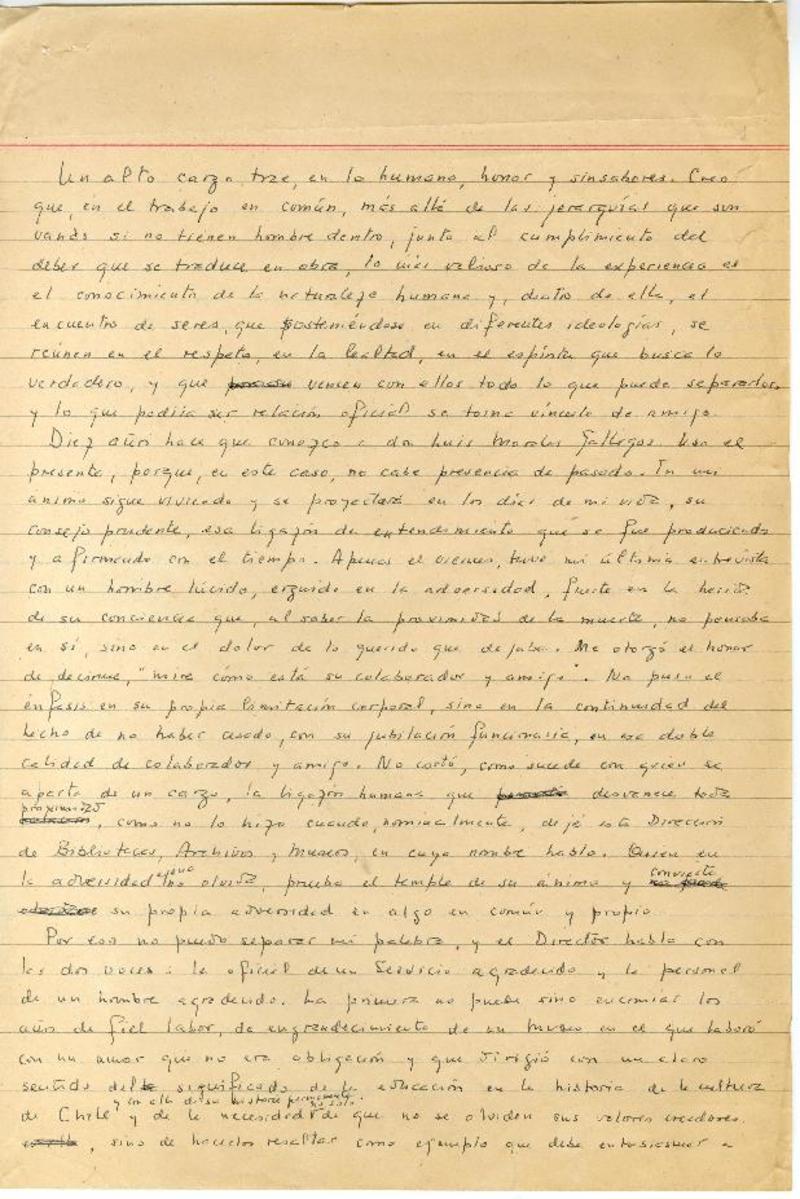 Un alto cargo trae, en lo humano, honor y sinsabores. Creo
que, en el trabajo en común, más allá de las jerarquías que son
vanas si no tienen hombre dentro, junto al cumplimiento del
deber que se traduce en obra, lo más valioso de la experiencia es
el conocimiento de la naturaleza humana y, dentro de ella, el
encuentro de seres, que sosteniéndose en diferentes ideologías, se
reúnen en el respeto, en la lealtad, en el espíritu que busca lo
verdadero, y que vencen con ellos todo lo que puede separarlos
y lo que podría ser relación oficial se torna vínculo de amigo.
Diez años hace que conozco a don Luis Morales Gallegos. Uso el
presente, porque, en este caso, no cabe presencia de pasado. En mi
ánimo sigue viviendo y se proyectará en los días de mi vida, su
consejo prudente, esa ligazón de entendimiento que se fue produciendo
y afirmando con el tiempo. Apenas el viernes, tuve mi última entrevista
con un hombre lúcido, erguido en la adversidad, fuerte en la
de su conciencia que, al saber la proximidad de la muerte, no pensaba
en sí, sino en el dolor de lo querido que dejaba. Me otorgó el honor
de decirme, "mire cómo está su colaborador y amigo". No puso el
énfasis en su propia limitación corporal, sino en la continuidad del
hecho de no haber cesado, con su jubilación funcionaria, en esa doble
calidad de colaborador y amigo. No cortó, como sucede con quien se
aparta de un cargo, la ligazón humana que desvanece toda
proximidad, como no lo hizo cuando, nominalmente, dejé esta Dirección
de Bibliotecas, Archivos y Museos, en cuyo nombre hablo. Quien en
la adversidad ajena no olvida, prueba el temple de su ánimo y convierte
su propia adversidad en algo en común y propio.
Por eso no puedo separar mi palabra, y el Director habla con
las dos voces: la oficial de un Servicio agradecido y la personal
de un hombre agradecido. La primera no puede sino encomiar los
años de fiel labor, de engrandecimiento de un Museo en el que laboró
con un amor que no era obligación y que dirigió con un claro
sentido del significado de la educación en la historia de la cultura
de Chile y en ella de su historia permanente y de la necesidad no sólo de que no se olviden sus valores creadores
, sino de hacerlos resaltar como ejemplo que debe entusiasmar a